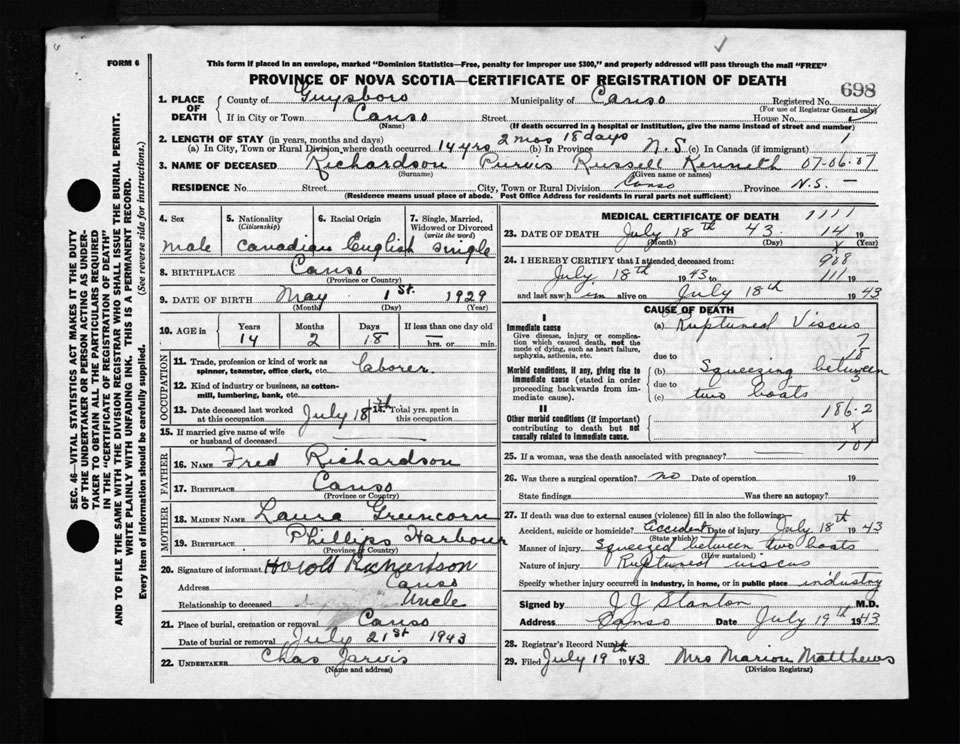 6
FORM 6
This form if placed in an envelope, marked "Dominion Statistics—Free, penalty for improper use $300," and properly addressed will pass through the mail "FREE"
PROVINCE OF NOVA SCOTIA—CERTIFICATE OF REGISTRATION OF DEATH
698
1. PLACE OF DEATH
County of Guysboro Municipality of Canso Registered No.
(For use of Registrar General only)
If in City or Town Canso Street House No.
(Name) (If death occurred in a hospital or institution, give the name instead of street and number)
2. LENGTH OF STAY (in years, months and days)
(a) In City, Town or Rural Division where death occurred 14 yrs 2 mos 18 days (b) In Province N.S. (c) In Canada (if immigrant) 1
3. NAME OF DECEASED Richardson Purvis Russell Kenneth 07-06.07
(Surname) (Given name or names)
RESIDENCE No. Street City, Town or Rural Division Canso Province N.S. —
(Residence means usual place of abode. Post Office Address for residents in rural parts not sufficient)
4. Sex 5. Nationality 6. Racial Origin 7. Single, Married, Widowed or Divorced
(Citizenship) (write the word)
male Canadian English single
8. BIRTHPLACE Canso
(Province or Country)
9. DATE OF BIRTH May 1st. 1929
(Month) (Day) (Year)
10. AGE in Years Months Days If less than one day old
14 2 18 — hrs. or min.
OCCUPATION
11. Trade, profession or kind of work as spinner, teamster, office clerk, etc. laborer.
12. Kind of industry or business, as cotton-mill, lumbering, bank, etc.
13. Date deceased last worked at this occupation July 18th 14. Total yrs. spent in this occupation
15. If married give name of wife or husband of deceased
FATHER
16. NAME Fred Richardson
17. BIRTHPLACE Canso
(Province or Country)
MOTHER
18. MAIDEN NAME Laura Greencorn
19. BIRTHPLACE Phillips Harbour
(Province or Country)
20. Signature of informant Harold Richardson
Address Canso
Relationship to deceased Uncle
21. Place of burial, cremation or removal Canso
Date of burial or removal July 21st 1943
22. UNDERTAKER Chas Jarvis
(Name and address)
MEDICAL CERTIFICATE OF DEATH 1111
23. DATE OF DEATH July 18th 43. 14 19
(Month) (Day) (Year)
x
24. I HEREBY CERTIFY that I attended deceased from: 908
July 18th 1943 to 111 19
and last saw h im alive on July 18th 1943
CAUSE OF DEATH
I
Immediate cause
Give disease, injury or complication which caused death, not the mode of dying, such as heart failure, asphyxia, asthenia, etc.
(a) Ruptured Viscus
due to
Morbid conditions, if any, giving rise to immediate cause (stated in order proceeding backwards from immediate cause).
(b) Squeezing between
due to
(c) two boats
II
Other morbid conditions (if important) contributing to death but not causally related to immediate cause.
186.2
x
101
25. If a woman, was the death associated with pregnancy?
26. Was there a surgical operation? no Date of operation 19
State findings Was there an autopsy?
27. If death was due to external causes (violence) fill in also the following:
Accident, suicide or homicide? Accident Date of injury July 18th 1943
(State which)
Manner of injury Squeezed between two boats
(How sustained)
Nature of injury Ruptured viscus
Specify whether injury occurred in industry, in home, or in public place industry
Signed by J J Stanton M.D.
Address Canso Date July 19th 1943
28. Registrar's Record Number
29. Filed July 19th 1943 Mrs Marion Matthews
(Division Registrar)
SEC. 46—VITAL STATISTICS ACT MAKES IT THE DUTY
OF THE UNDERTAKER OR PERSON ACTING AS UNDER-
TAKER TO OBTAIN ALL THE PARTICULARS REQUIRED
IN THE "CERTIFICATE OF REGISTRATION OF DEATH"
AND TO FILE THE SAME WITH THE DIVISION REGISTRAR WHO SHALL ISSUE THE BURIAL PERMIT.
WRITE PLAINLY WITH UNFADING INK. THIS IS A PERMANENT RECORD.
Every item of information should be carefully supplied. (See reverse side for instructions.)